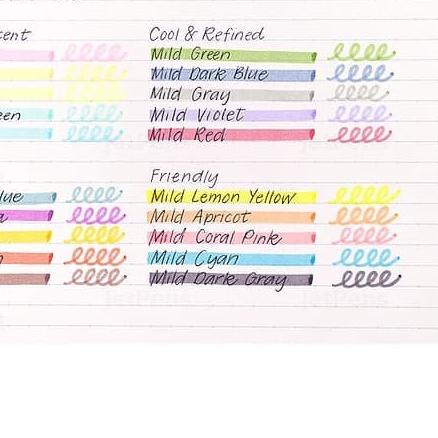 cent
Cool & Refined
Mild Green
Mild Dark Blue
Mild Gray
een
Mild Violet
Mild Red
Friendly
lue
Mild Lemon Yellow
a
Mild Apricot
Mild Coral Pink
Mild Cyan
Mild Dark Gray
JetPens
JetPens